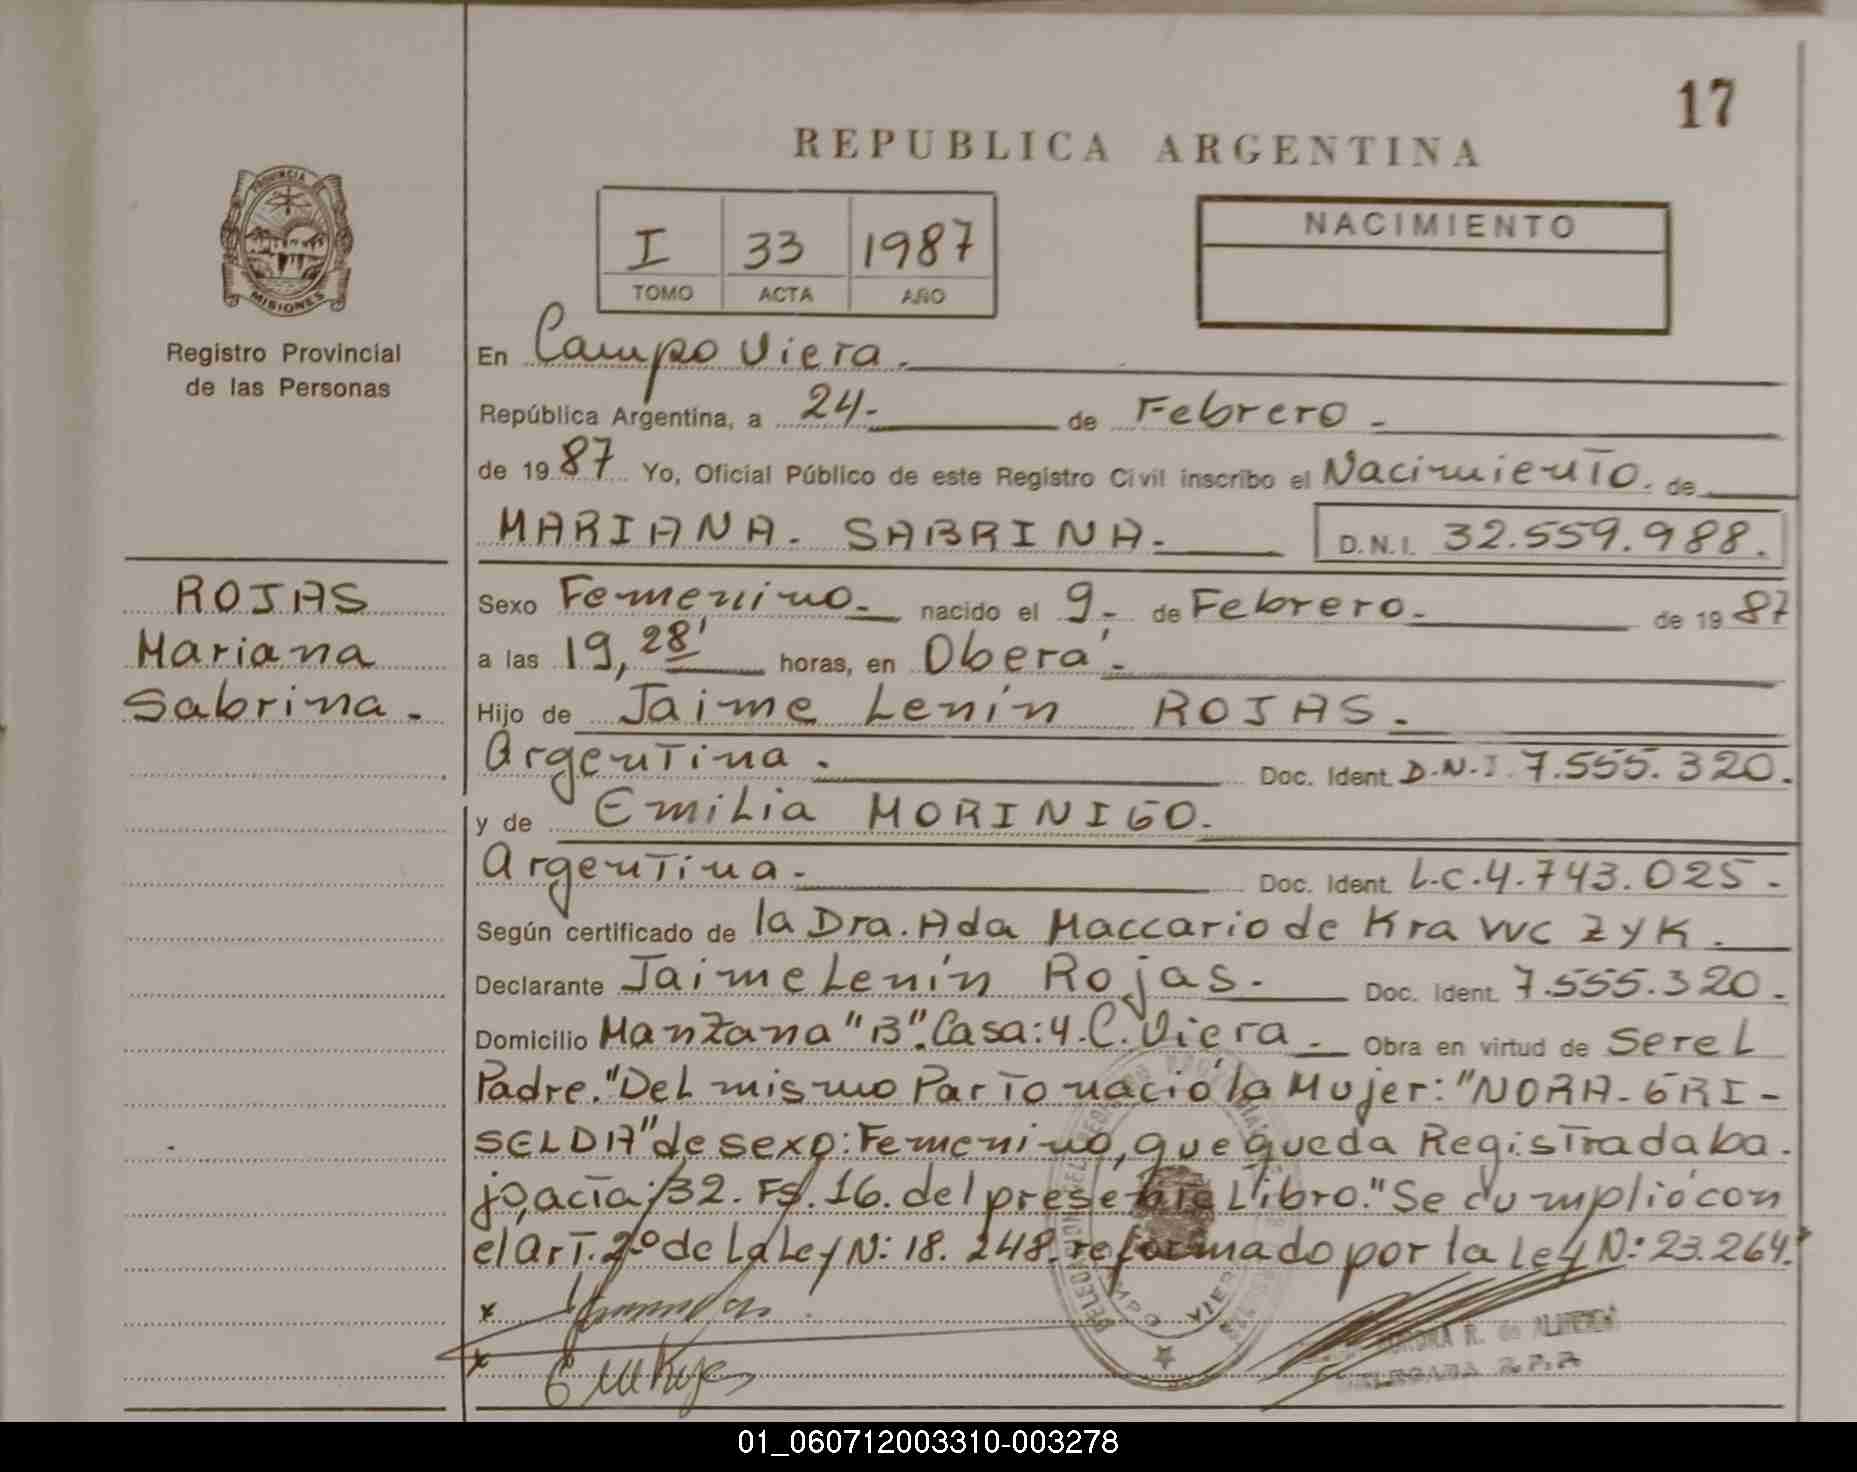 17
REPUBLICA ARGENTINA
PROVINCIA
MISIONES
Registro Provincial
de las Personas
I 33 1987
TOMO ACTA AÑO
NACIMIENTO
En Campo Viera.
República Argentina, a 24- de Febrero-
de 1987 Yo, Oficial Público de este Registro Civil inscribo el Nacimiento. de
MARIANA. SABRINA.- D.N.I. 32.559.988.
ROJAS
Mariana
Sabrina.
Sexo Femenino.- nacido el 9.- de Febrero.- de 1987
a las 19,28' horas, en Oberá.-
Hijo de Jaime Lenín ROJAS.-
Argentina.- Doc. Ident. D.N.I. 7.555.320.
y de Emilia MORINIGO.
Argentina.- Doc. Ident. L.C.4.743.025.-
Según certificado de la Dra. Ada Maccario de KraWCZYK.
Declarante Jaime Lenín Rojas.- Doc. Ident. 7.555.320.-
Domicilio Manzana "B". Casa:4.C.Viera.- Obra en virtud de Ser el
Padre."Del mismo Parto nació la Mujer:"NORA-GRI-
SELDA" de sexo: Femenino, que queda Registrada ba.
jo, acta:/32. Fs. 16. del presente Libro."Se cumplió con
el art. 2º de la Ley N: 18.248. reformado por la Ley N: 23.264.
x
x
CAMPO VIERA
R. de ALMEIDA
DELEGADA R.P.P.
01_060712003310-003278